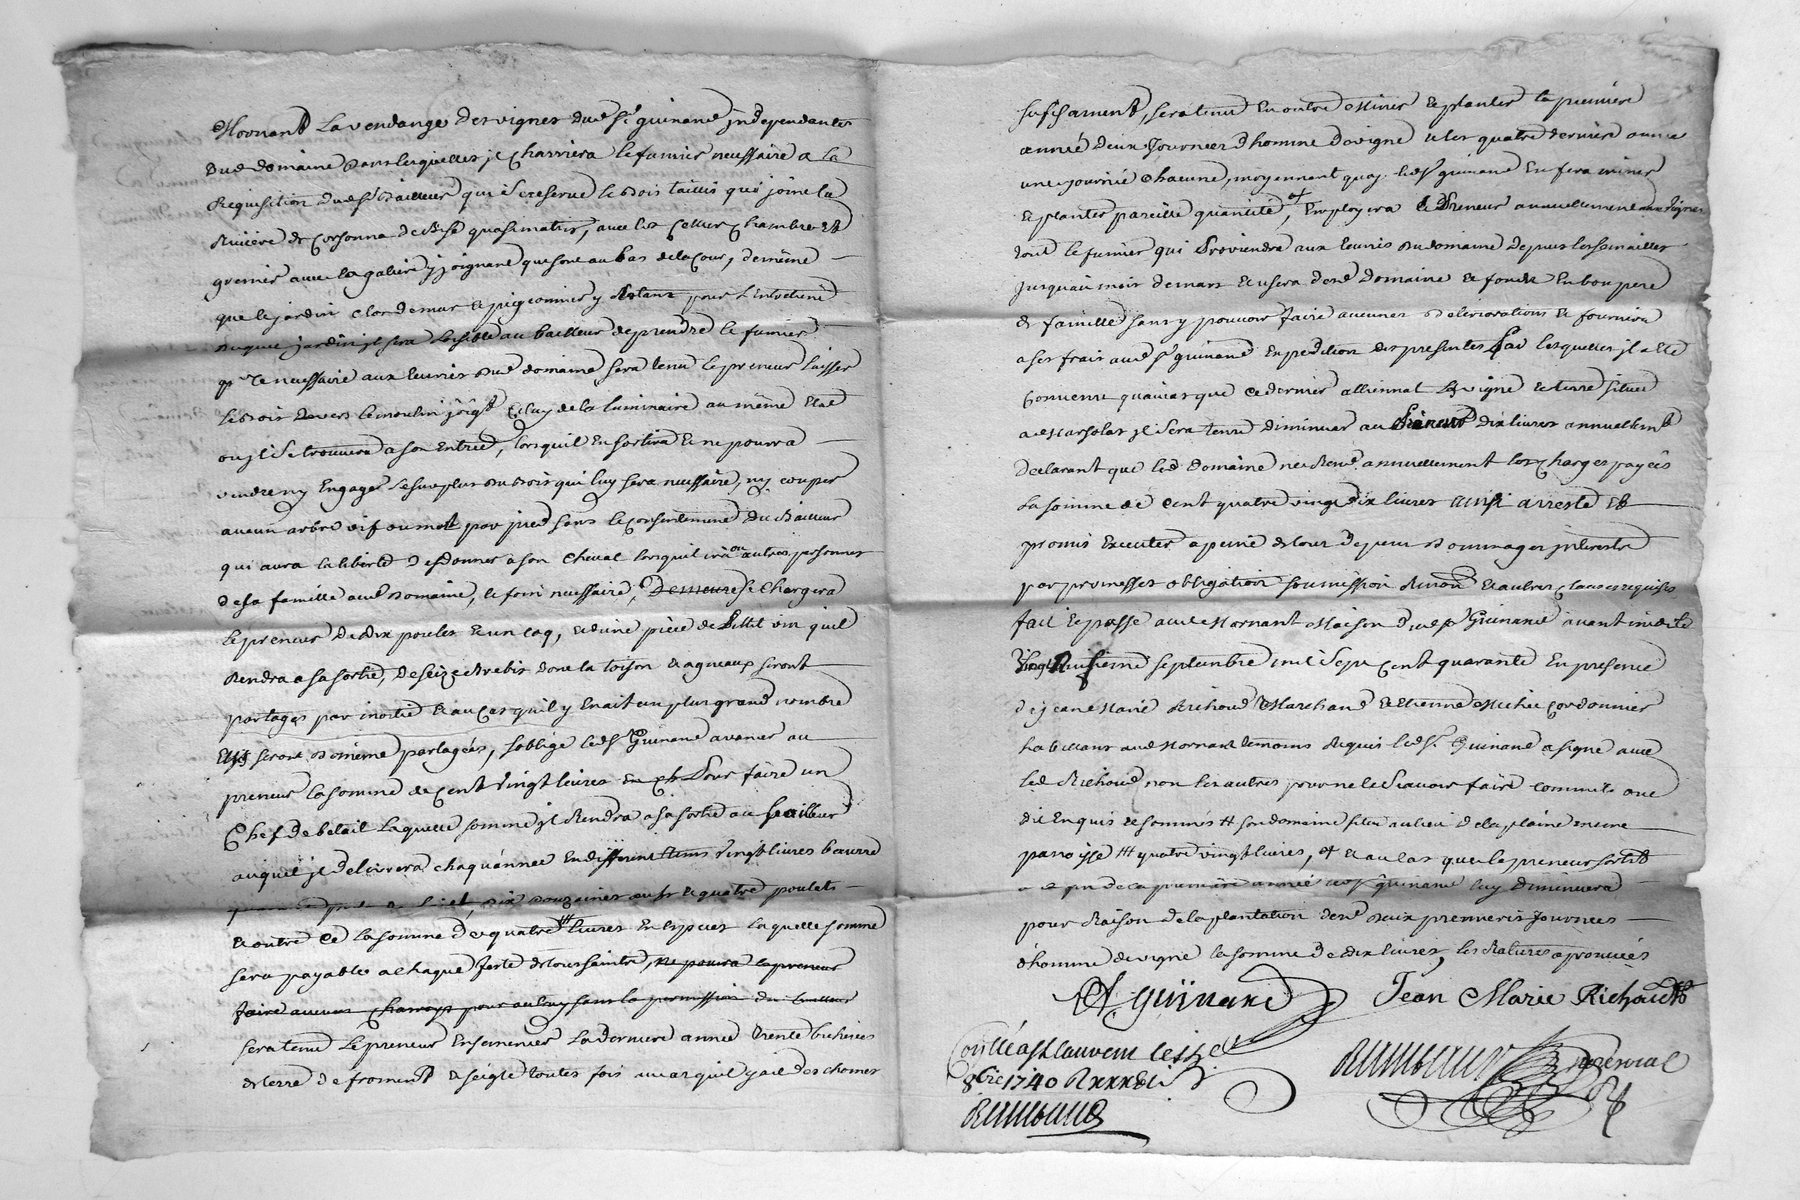 Mornant La vendange des vignes dud. Sr. guinand jndependantes
dud domaine dans lesquelles jl Charriera le fumier neussaire a la
Requisition dud Sr Bailleur qui Se reserve le bois taillis qui joint la
Riviere de Corsonna de bise quasi matin, avec les Cellier Chambre Et
grenier avec la galerie y joignant qui sont au bas de la Cour, de même
que le jardin clos de mur et pigeonnier y Estant pour L'Entretient
duquel jardin jl sera loisible au bailleur de prendre le fumier
neussaire aux Ecuries dud domaine, sera tenu le preneur laisser
le bois Envers le moulin joigt Celuy de la luminaire au même Etat
ou jl Se trouvera a son Entrée, lorsquil En sortira Et ne pourra
vendre ny Engager le surplus du bois qui luy sera neussaire, ny couper
aucun arbre vif ou mort par pied sans le Consentement du Bailleur
qui aura la liberté de donner a son Cheval lorsquil ira ou autres personnes
de sa famille aud Domaine, le foin neussaire, Demeure Se Chargera
le preneur de dix poules et un Coq, et d'une piece de Petit vin quil
Rendra a sa sortie, de seize Brebis dont la toison et agneaux seront
partages par moitié et au Cas quil y En ait un plus grand nombre
Ils seront de même partagées, s'oblige led Sr Guinand avancer au
preneur la somme de Cent vingt livres Pour faire un
Chef de betail laquelle somme jl Rendra a sa sortie au Bailleur
auquel jl delivrera chaquannée En different tems vingt livres beurre
six douzaines oeufs et quatre poulets
et outre Ce la somme de quatre livres En Especes laquelle somme
sera payable a chaque feste de toussaints, ne pourra le preneur
faire aucuns Charroys pour autruy sans la permission du bailleur
sera tenu le preneur Ensemencer la derniere année trente bicherées
de terre de froment et seigle toutes fois
sufisament, sera tenu En outre Miner et planter la premiere
année deux Journées d'homme de vigne et les quatre derniere année
une journée chacune, moyennant quoy led Sr guinand En fera miner
et planter pareille quantité, Employera le Preneur annuellement aux vignes
tout le fumier qui Proviendra aux Ecuries du domaine depuis les semailles
jusquau mois de mars et usera dud Domaine et fonds En bon pere
de famille sans y pouvoir faire aucunes deteriorations et fournira
a ses frais aud Sr guinand Expedition des presentes Par lesquelles jl a Eté
Convenu quau cas que ce dernier alliennat la vigne et terre situés
a Marsolas jl Sera tenu diminuer au Preneur dix livres annuellemt
declarant que led domaine ne Rend annuellement les Charges payées
la somme de Cent quatre vingt dix livres ainsi arresté Et
promis Executer a peine de tous depens dommages jnterests
par promesses obligation soumission Renon et autres Clauses requises
fait Et passé aud Mornant Maison dud Sr Guinand avant midi le
septembre mil Sept Cent quarante En presence
de jean Marie Richoud Marchand et Etienne Michu Cordonnier
habittans aud Mornant temoins Requis led Sr. Guinand a signé avec
led Richoud non les autres pour ne le Scavoir faire comme ils ont
dit Enquis et sommés # son domaine situé au lieu de la plaine meme
paroisse ### quatre vingt livres, et au Cas que le preneur sortit
a la fin de la premiere année led Sr guinand luy diminuera
pour Raison de la plantation desd deux premieres journées
d'homme de vigne la somme de dix livres, les Ratures aprouvées
Guinand Jean Marie Richoud
Conllé a St Lauvent le
8bre 1740